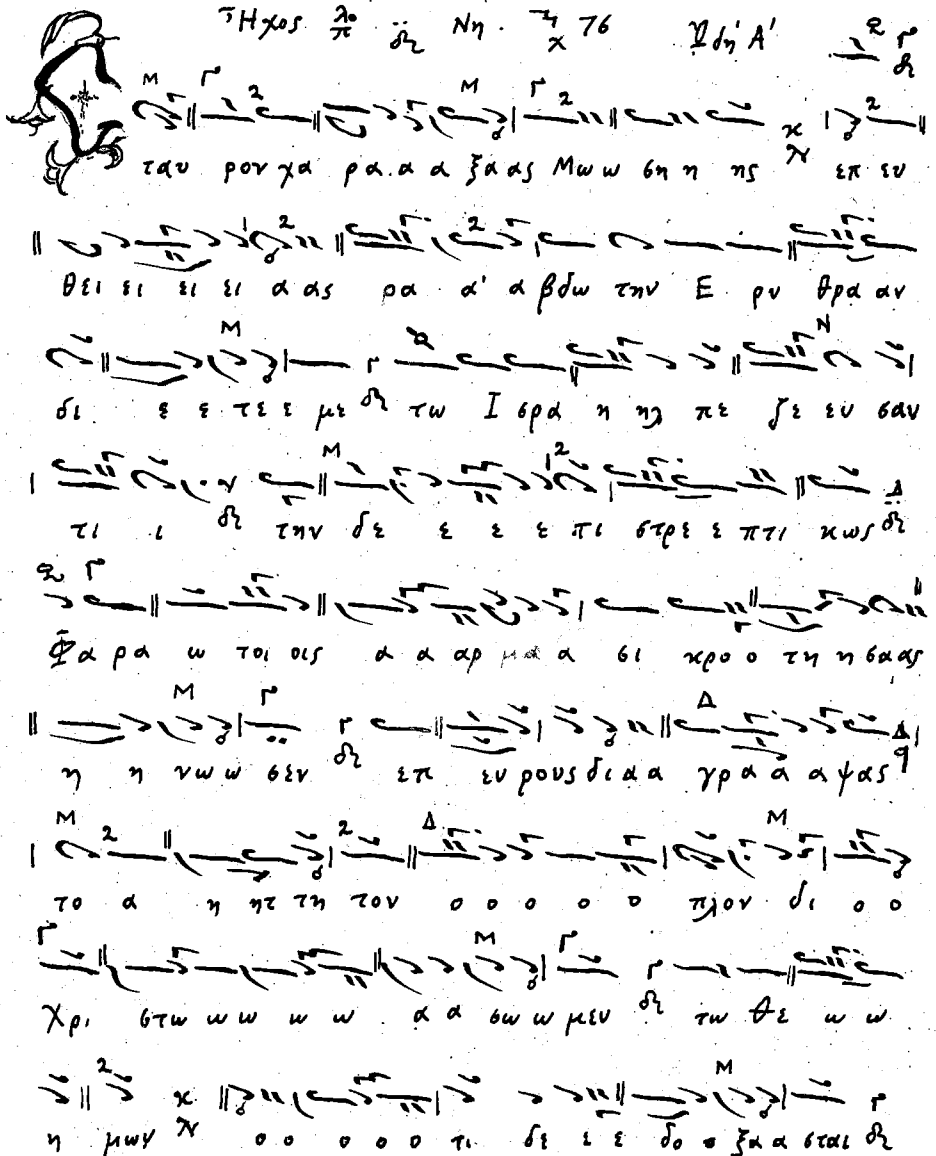 Ἦχος λ π δι Νη. χ 76 Ὠδή Α'
ταυ ρον χα ρα α α ξα ας Μω ω ση η ης επ ευ
θει ει ει ει α ας ρα α' α βδω την Ε ρυ θρα αν
δι ε ε τε ε με τω Ι σρα η ηλ πε ζε ευ σαν
τι ι την δε ε ε ε πι στρε ε πτι κως
Φα ρα ω τοι οις α α αρ μα α σι κρο ο τη η σα ας
η η νω ω σεν επ ευ ρους δι α α γρα α α ψας
το α η ητ τη τον ο ο ο ο ο πλον δι ο ο
Χρι στω ω ω ω ω α α σω ω μεν τω Θε ω ω
η μων ο ο ο ο ο τι δε ε ε δο ο ξα α σται